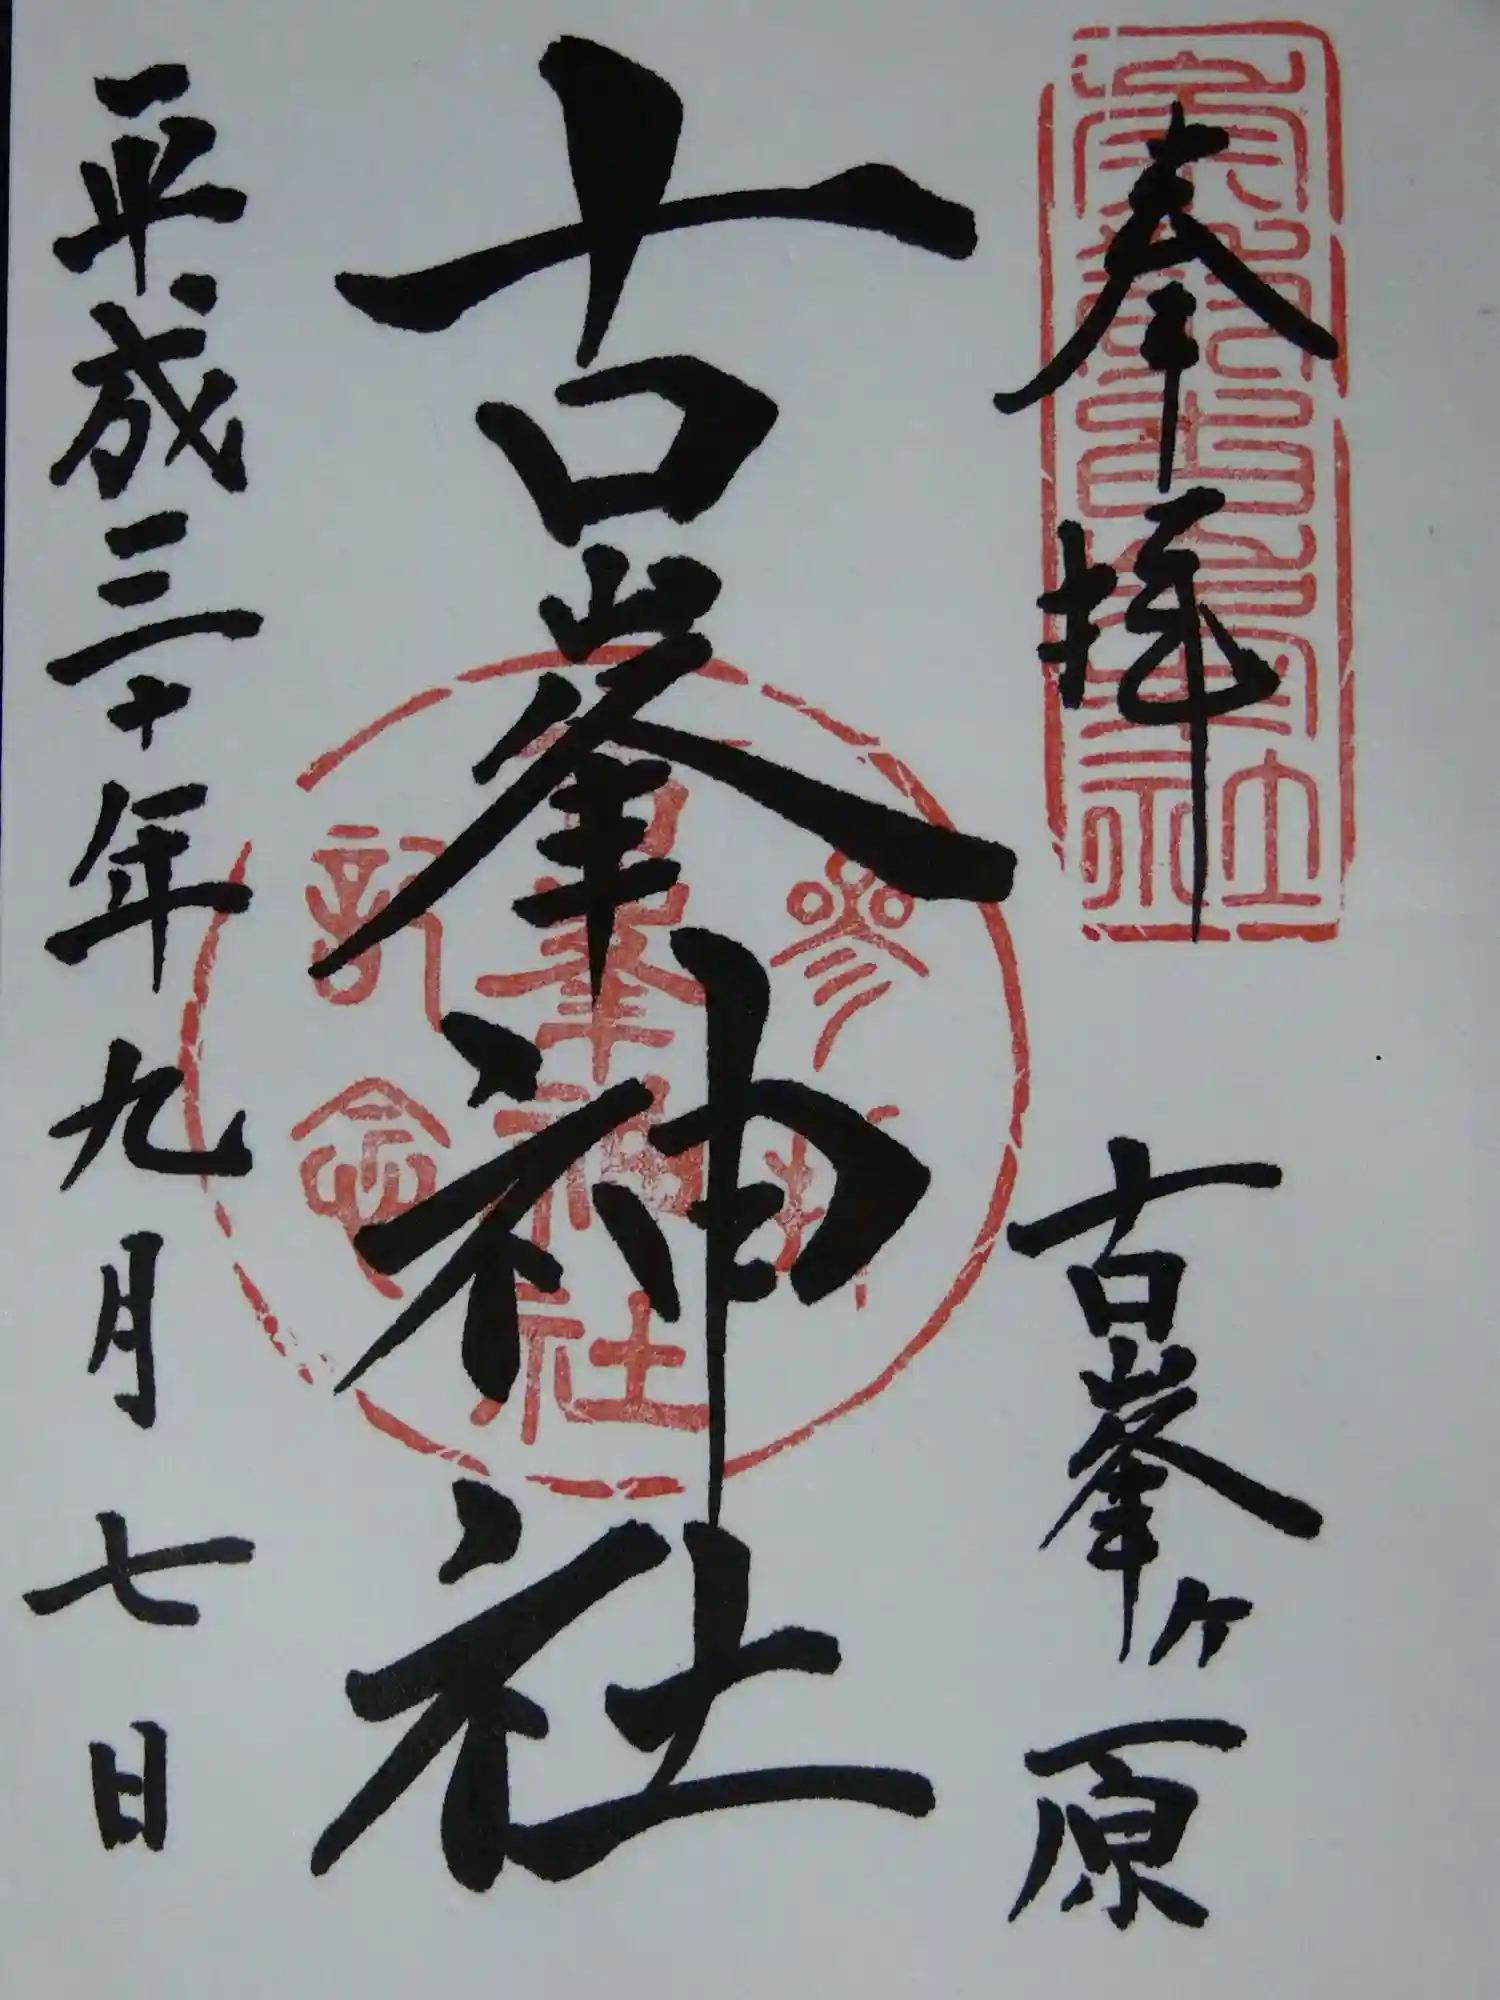 奉拝
古峯ヶ原
古峯神社
参拝記念
古峯神社
平成三十年九月七日